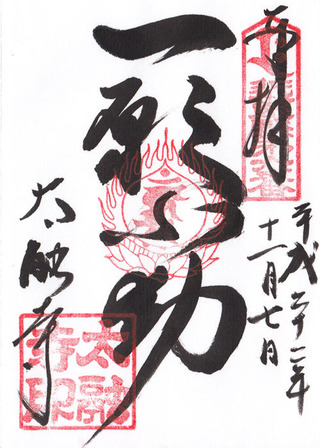 奉拝
平成二十二年
十一月七日
一願不動
太融寺
太融寺印